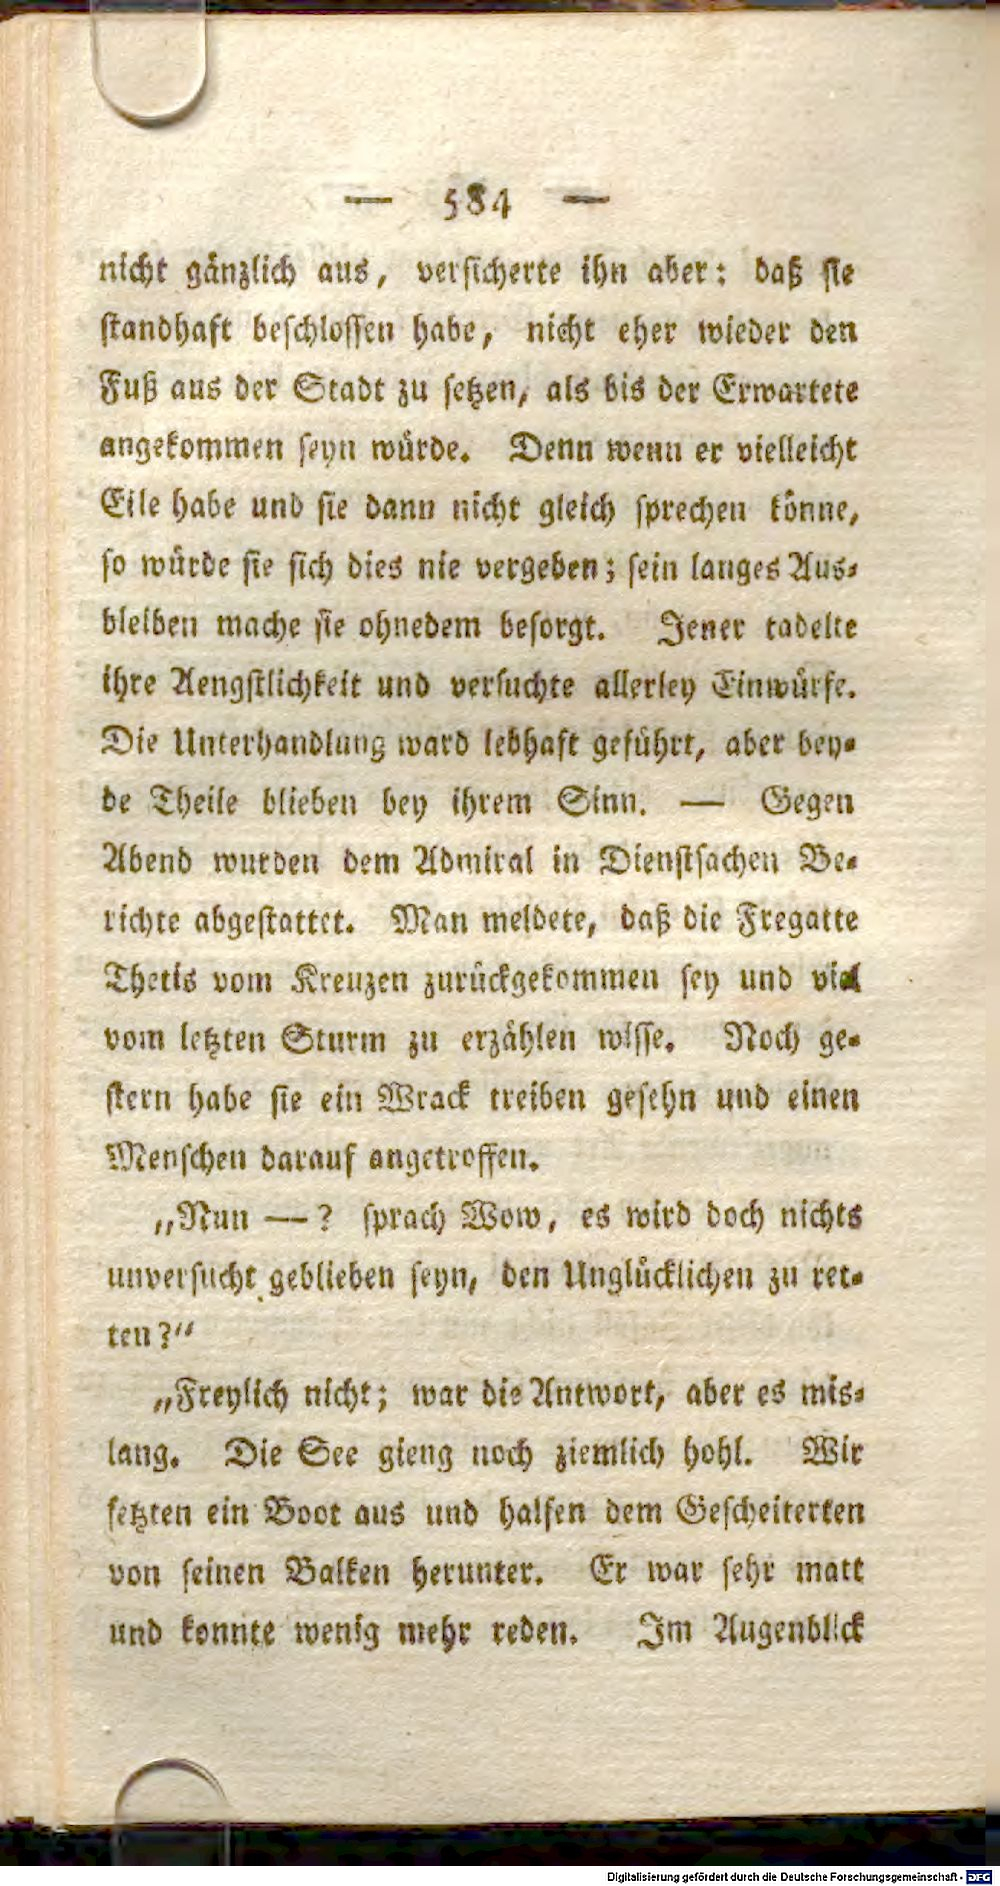 — 584 —
nicht gänzlich aus, versicherte ihn aber: daß sie
standhaft beschlossen habe, nicht eher wieder den
Fuß aus der Stadt zu setzen, als bis der Erwartete
angekommen seyn würde. Denn wenn er vielleicht
Eile habe und sie dann nicht gleich sprechen könne,
so würde sie sich dies nie vergeben; sein langes Aus-
bleiben mache sie ohnedem besorgt. Jener tadelte
ihre Aengstlichkeit und versuchte allerley Einwürfe.
Die Unterhandlung ward lebhaft geführt, aber bey-
de Theile blieben bey ihrem Sinn. — Gegen
Abend wurden dem Admiral in Dienstsachen Be-
richte abgestattet. Man meldete, daß die Fregatte
Thetis vom Kreuzen zurückgekommen sey und viel
vom letzten Sturm zu erzählen wisse. Noch ge-
stern habe sie ein Wrack treiben gesehn und einen
Menschen darauf angetroffen.
„Nun —? sprach Wow, es wird doch nichts
unversucht geblieben seyn, den Unglücklichen zu ret-
ten?“
„Freylich nicht; war die Antwort, aber es mis-
lang. Die See gieng noch ziemlich hohl. Wir
setzten ein Boot aus und halfen dem Gescheiterten
von seinen Balken herunter. Er war sehr matt
und konnte wenig mehr reden. Im Augenblick
Digitalisierung gefördert durch die Deutsche Forschungsgemeinschaft - DFG